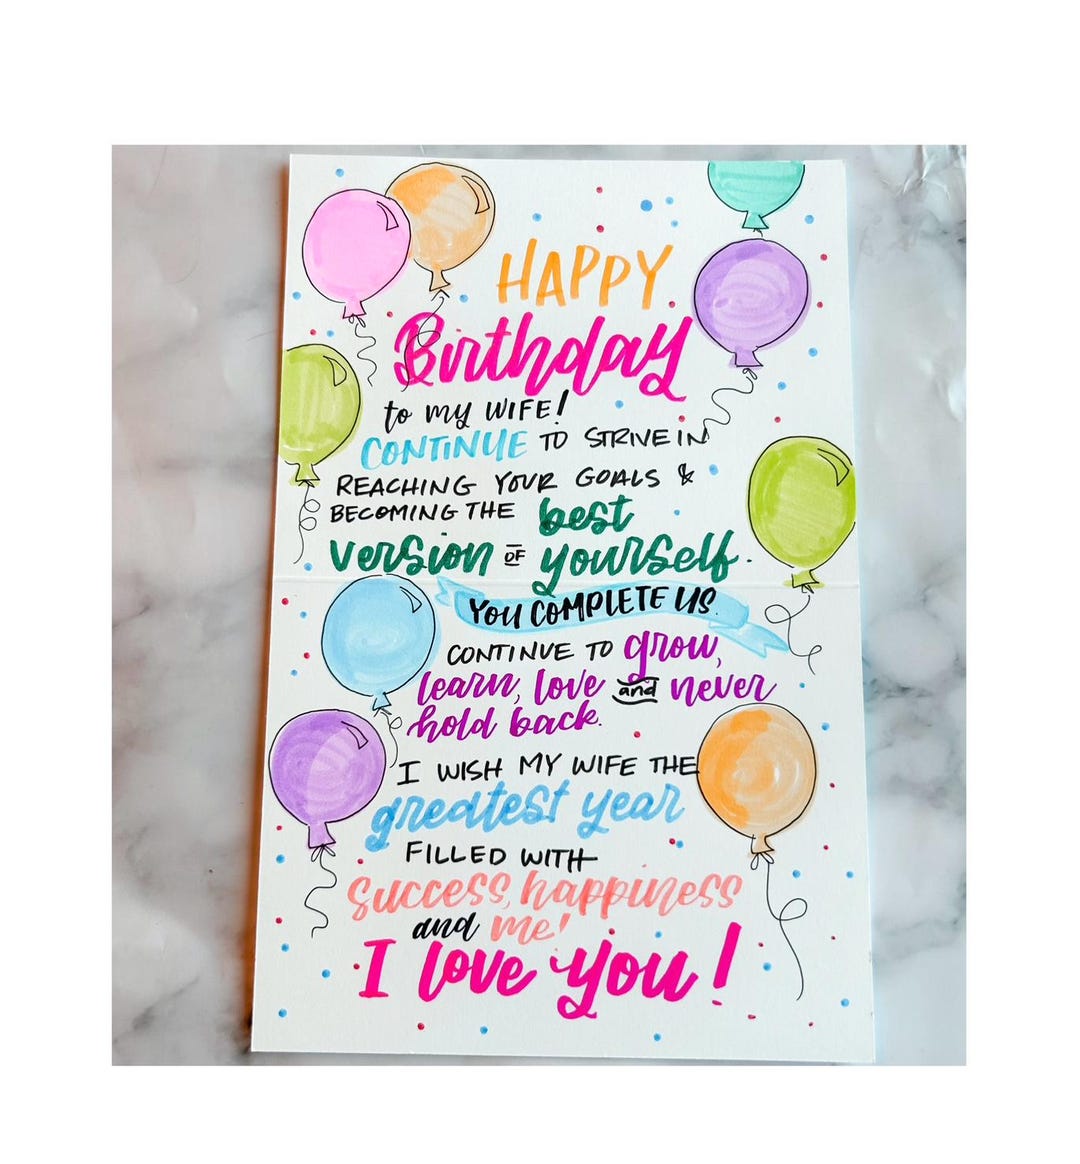 HAPPY
Birthday
to my WIFE!
CONTINUE TO STRIVE IN
REACHING YOUR GOALS &
BECOMING THE best
version OF yourself.
YOU COMPLETE US.
CONTINUE TO grow,
learn, love and never
hold back.
I WISH MY WIFE THE
greatest year
FILLED WITH
success, happiness
and me!
I love you!